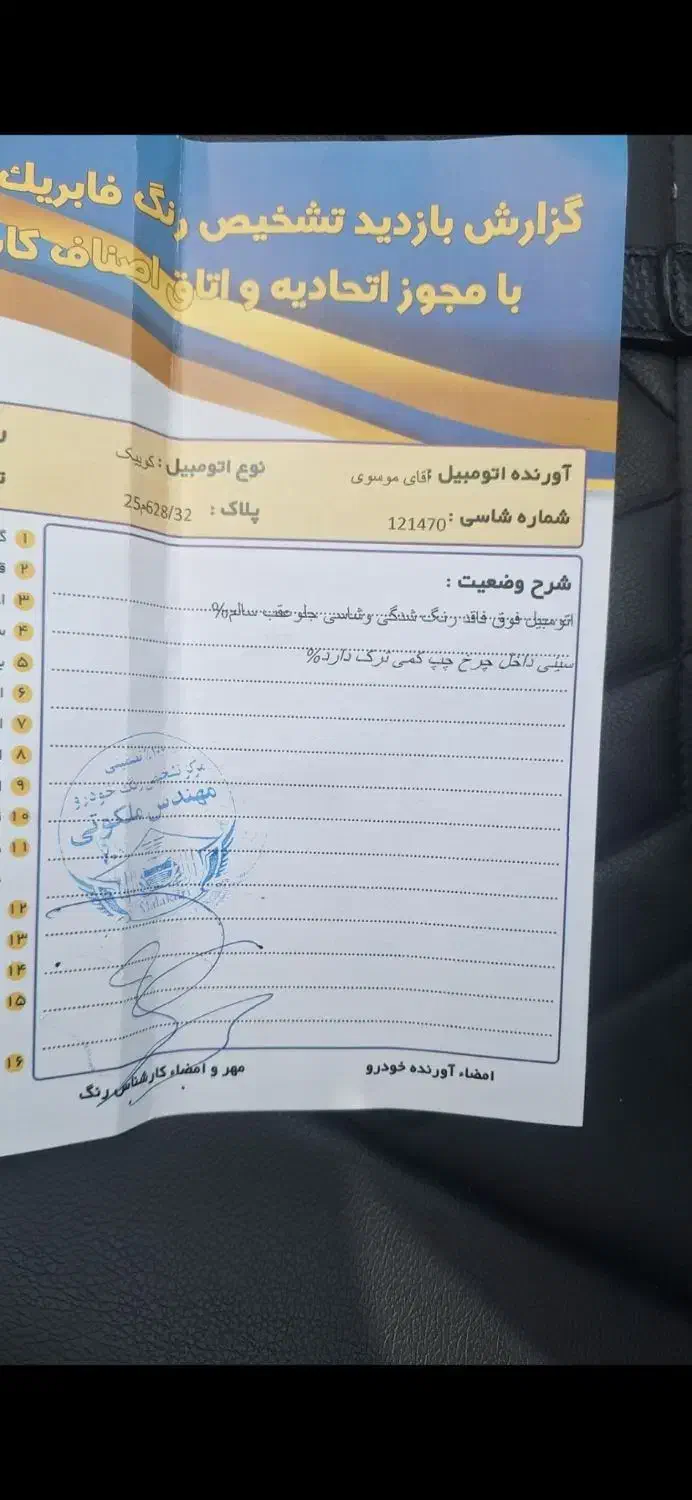 گزارش بازدید تشخیص رنگ فابریک
با مجوز اتحادیه و اتاق اصناف
آورنده اتومبیل : آقای موسوی
نوع اتومبیل : کوییک
شماره شاسی : 121470
پلاک : 25م628/32
شرح وضعیت :
اتومبیل فوق فاقد رنگ شدگی وشاسی جلو عقب سالم%
سینی داخل چرخ چپ کمی ترک دارد%
مرکز تشخیص رنگ خودرو
مهندس ملکوتی
Malakuti
امضاء آورنده خودرو
مهر و امضاء کارشناس رنگ
۱
۲
۳
۴
۵
۶
۷
۸
۹
۱۰
۱۱
۱۲
۱۳
۱۴
۱۵
۱۶